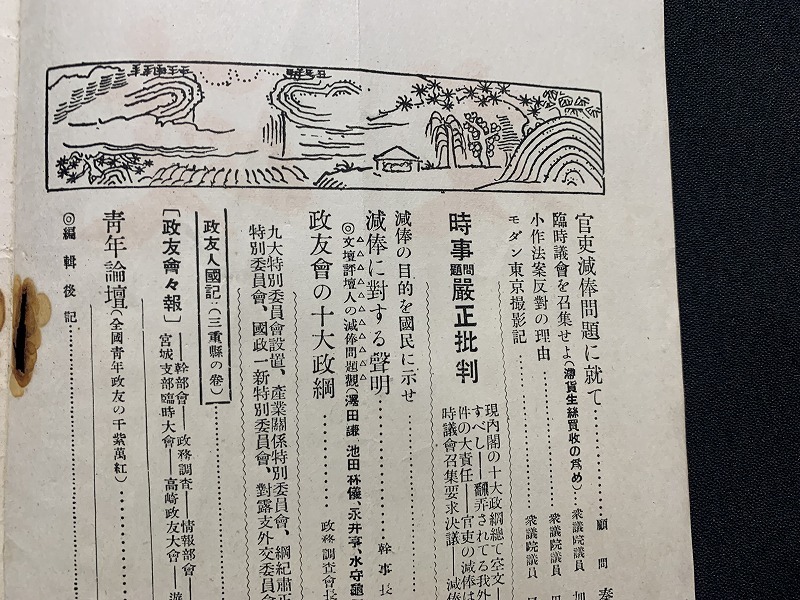 官吏減俸問題に就て…………顧問
臨時議會を召集せよ(滯貨生絲買收の爲め)…衆議院議員
小作法案反對の理由…………衆議院議員
モダン東京撮影記…………衆議院議員
時事問題嚴正批判
現內閣の十大政綱總て空文—
すべし—飜弄されてる我外
件の大責任—官吏の減俸は
時議會召集要求決議
減俸の目的を國民に示せ
減俸に對する聲明…………幹事長
◎文壇評壇人の減俸問題觀(澤田謙、池田林儀、永井亨、水守龜
政友會の十大政綱…………政務調査會長
九大特別委員會設置、產業關係特別委員會、綱紀肅正
特別委員會、國政一新特別委員會、對露支外交委員會
政友人國記…(三重縣の卷)…………
〔政友會々報〕
幹部會—政務調査—情報部會—
宮城支部臨時大會—高崎政友大會—
靑年論壇(全國靑年政友の千紫萬紅)…………
◎編輯後記…………